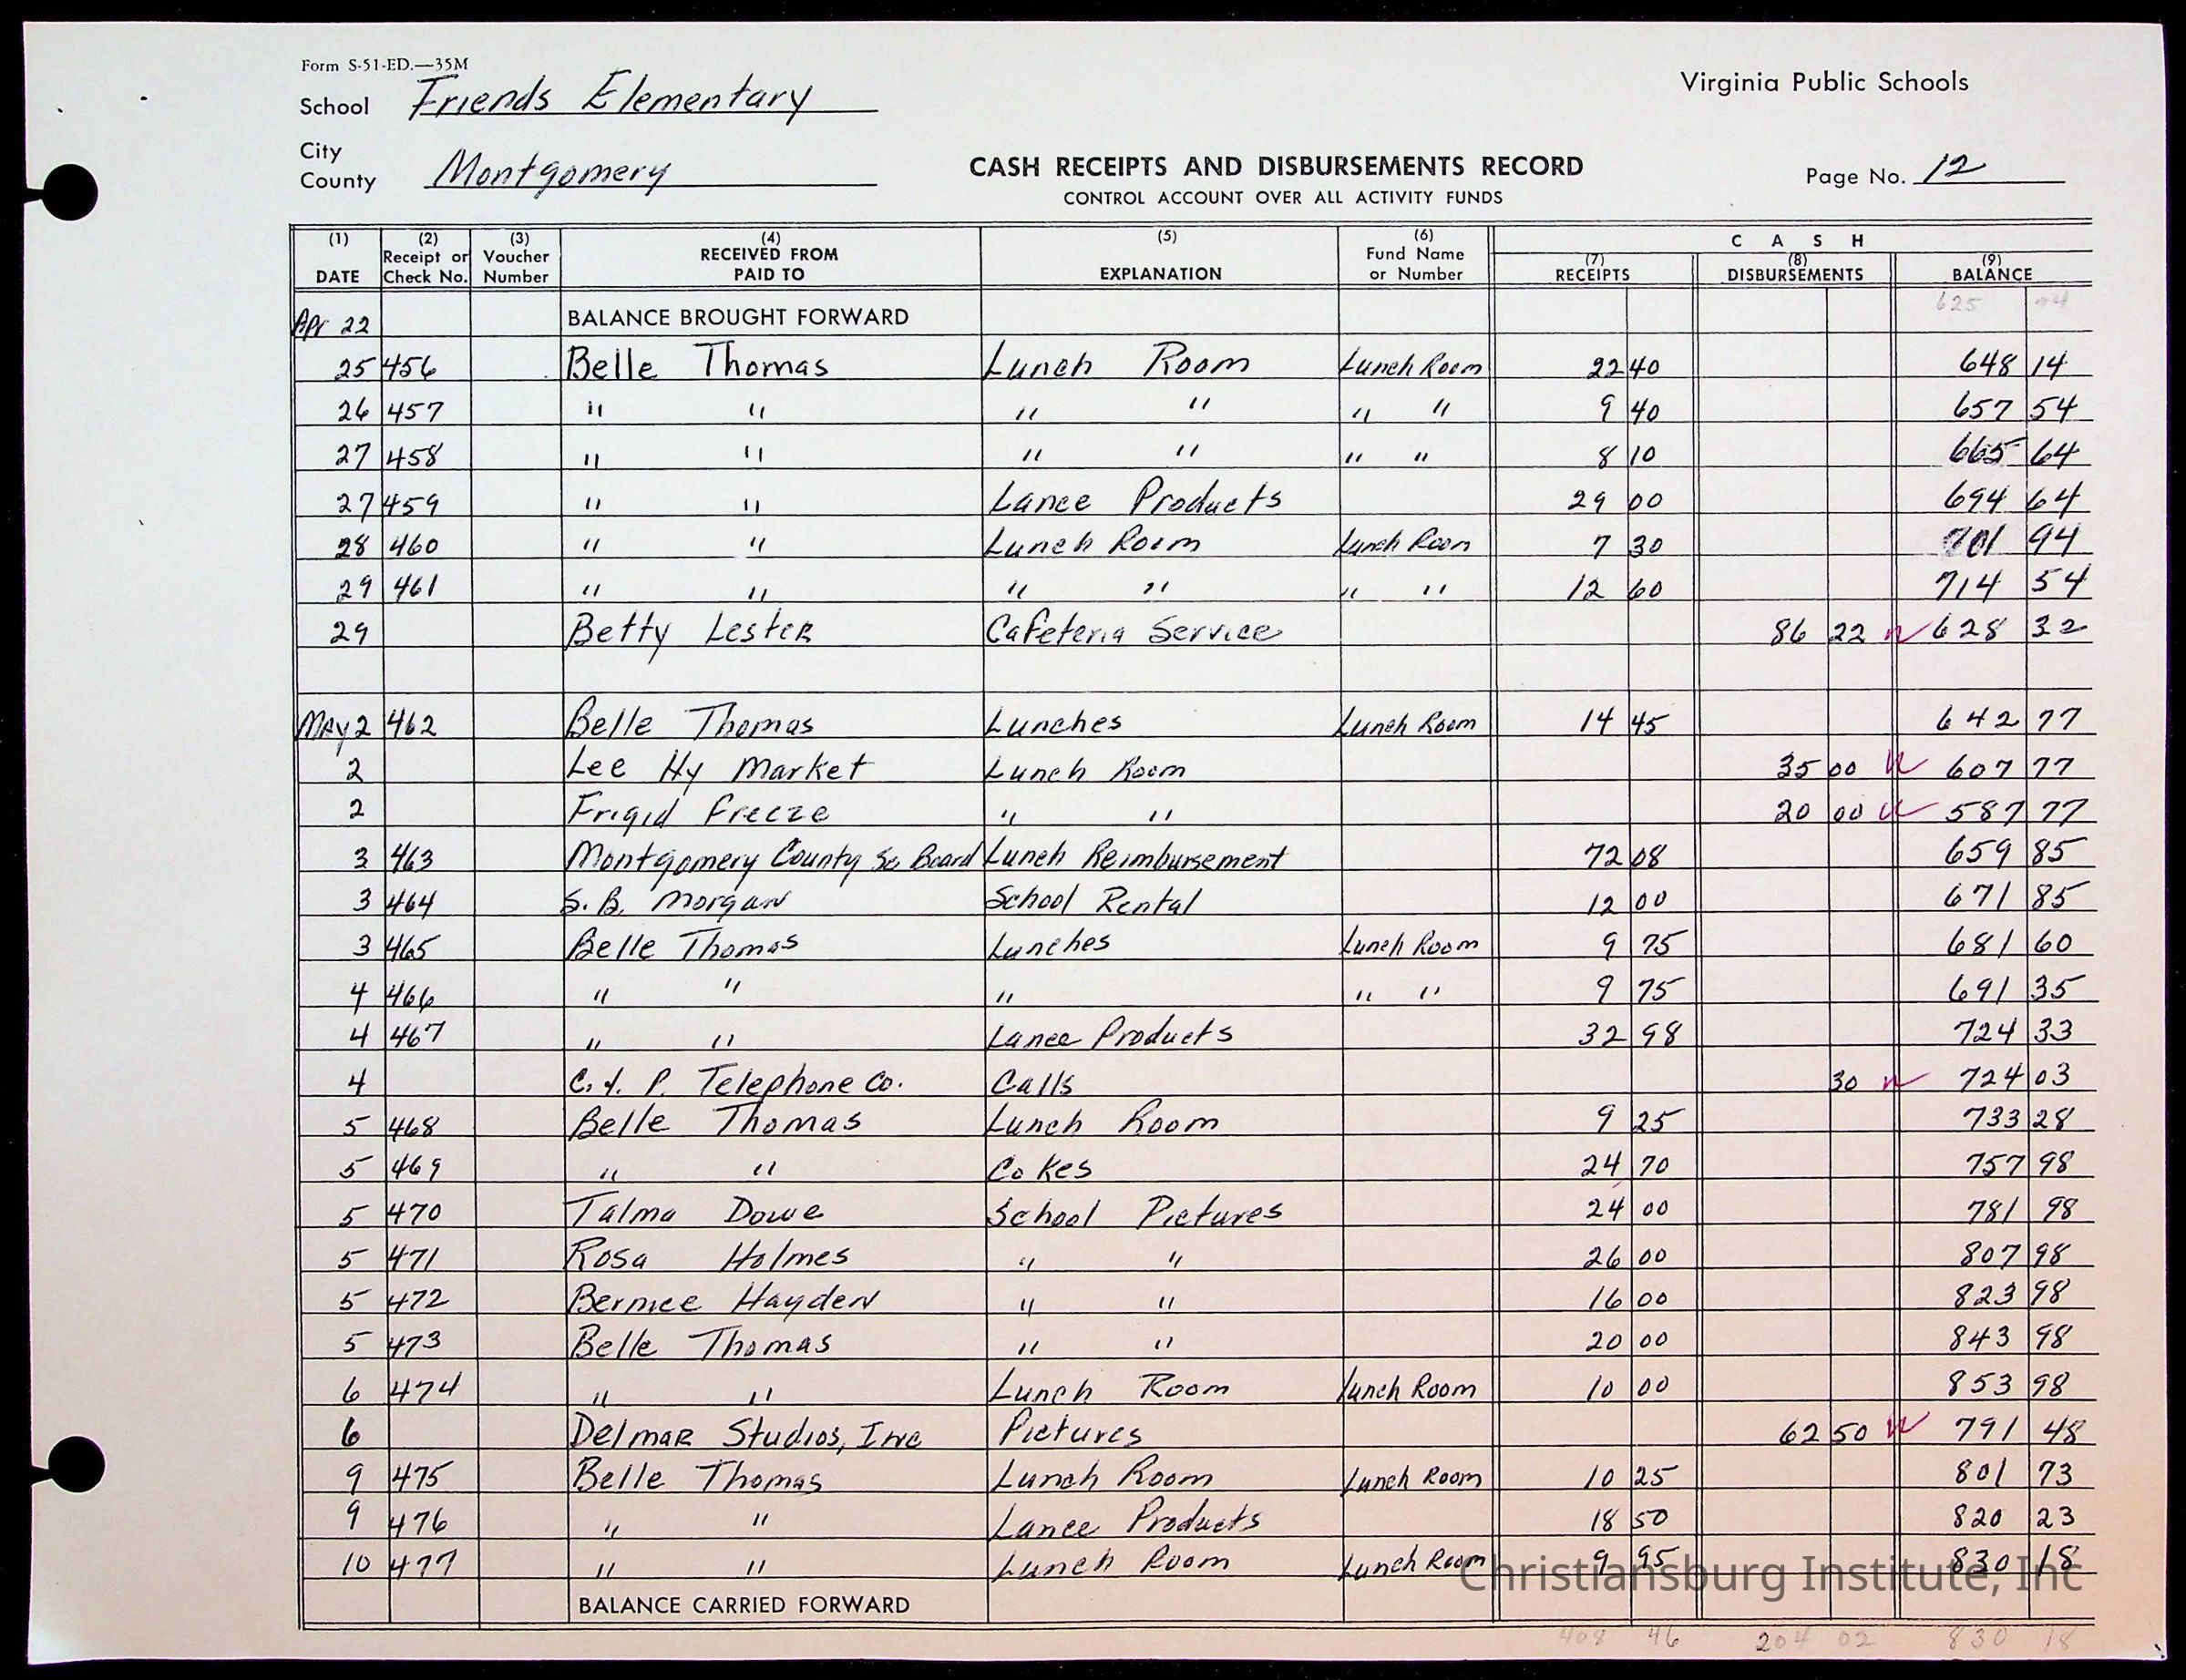 Form S-51-ED.—35M
School Friends Elementary
Virginia Public Schools
City
County Montgomery
CASH RECEIPTS AND DISBURSEMENTS RECORD
Page No. 12
CONTROL ACCOUNT OVER ALL ACTIVITY FUNDS
(1) DATE (2) Receipt or Check No. (3) Voucher Number (4) RECEIVED FROM PAID TO (5) EXPLANATION (6) Fund Name or Number CASH (7) RECEIPTS (8) DISBURSEMENTS (9) BALANCE
Apr 22 BALANCE BROUGHT FORWARD 625
25 456 Belle Thomas Lunch Room Lunch Room 22 40 648 14
26 457 " " " " " " 9 40 657 54
27 458 " " " " " " 8 10 665 64
27 459 " " Lance Products 29 00 694 64
28 460 " " Lunch Room Lunch Room 7 30 701 94
29 461 " " " " " " 12 60 714 54
29 Betty Lester Cafeteria Service 86 22 628 32
May 2 462 Belle Thomas Lunches Lunch Room 14 45 642 77
2 Lee Hy Market Lunch Room 35 00 607 77
2 Frigid Freeze " " 20 00 587 77
3 463 Montgomery County Sc Board Lunch Reimbursement 72 08 659 85
3 464 S. B. Morgan School Rental 12 00 671 85
3 465 Belle Thomas Lunches Lunch Room 9 75 681 60
4 466 " " " " " 9 75 691 35
4 467 " " Lance Products 32 98 724 33
4 C. & P. Telephone Co. Calls 30 724 03
5 468 Belle Thomas Lunch Room 9 25 733 28
5 469 " " Cokes 24 70 757 98
5 470 Talma Dowe School Pictures 24 00 781 98
5 471 Rosa Holmes " " 26 00 807 98
5 472 Bernice Hayden " " 16 00 823 98
5 473 Belle Thomas " " 20 00 843 98
6 474 " " Lunch Room Lunch Room 10 00 853 98
6 Delmar Studios, Inc Pictures 62 50 791 48
9 475 Belle Thomas Lunch Room Lunch Room 10 25 801 73
9 476 " " Lance Products 18 50 820 23
10 477 " " Lunch Room Lunch Room 9 95 830 18
Christiansburg Institute, Inc
BALANCE CARRIED FORWARD
408 46 204 02 830 18